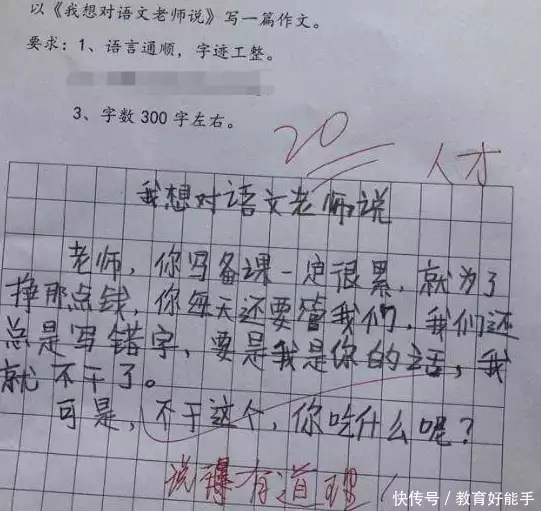 以《我想对语文老师说》写一篇作文。
要求：1、语言通顺，字迹工整。
3、字数 300 字左右。
20
人才
我想对语文老师说
老师，你写备课一定很累，就为了
挣那点钱，你每天还要管我们，我们还
总是写错字，要是我是你的话，我
就不干了。
可是，不干这个，你吃什么呢？
说得有道理！
快传号／教育好能手